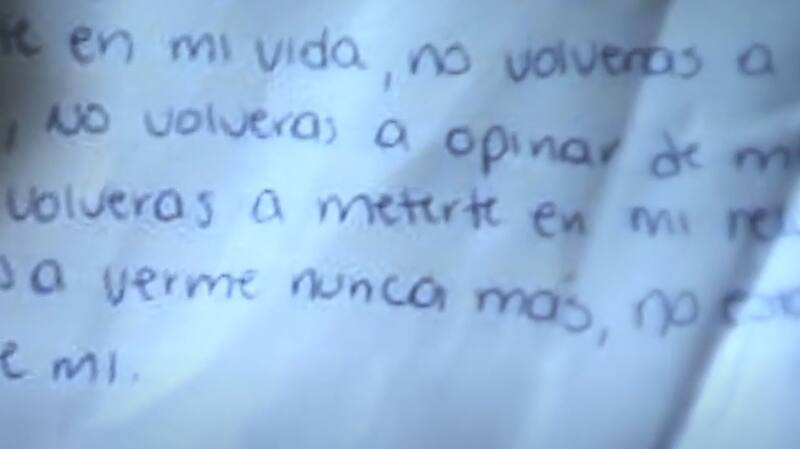 te en mi vida, no volveras a
, No volveras a opinar de m
volveras a meterte en mi rel
s a verme nunca más, no es
e mi.